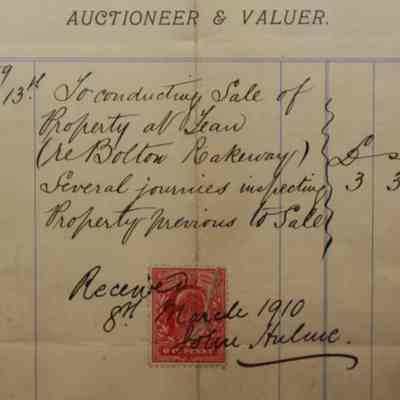 AUCTIONEER & VALUER.
9
13th To conducting Sale of
Property at Tean
(re Bolton Oakeway) £ s
Several journies inspecting 3 3
Property previous to Sale
Received
8th March 1910
John Hulme.
ONE PENNY